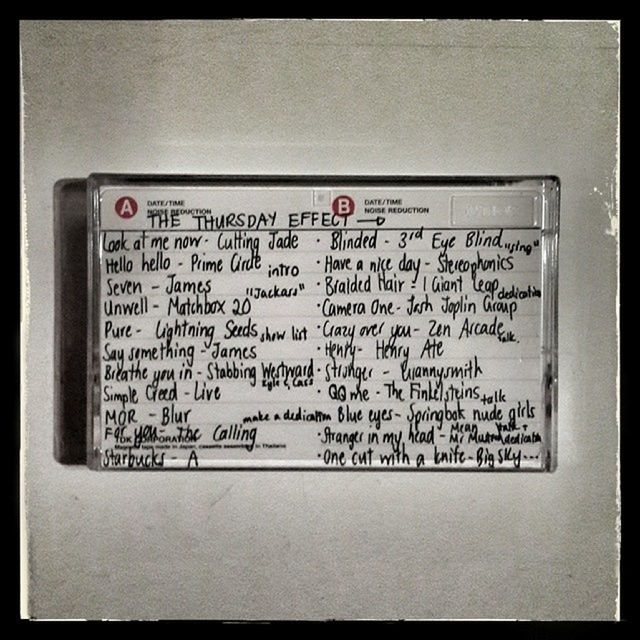 A DATE/TIME NOISE REDUCTION
B DATE/TIME NOISE REDUCTION
THE THURSDAY EFFECT →
Look at me now - Cutting Jade
Hello hello - Prime Circle intro
Seven - James "Jackass"
Unwell - Matchbox 20
Pure - Lightning Seeds show list
Say something - James
Breathe you in - Stabbing Westward
Simple Creed - Live
MOR - Blur
For you - The Calling
TDK CORPORATION
Starbucks - A
· Blinded - 3rd Eye Blind "sing"
· Have a nice day - Stereophonics
· Braided Hair - 1 Giant Leap dedication
· Camera One - Josh Joplin Group
· Crazy over you - Zen Arcade talk
· Henry - Henry Ate
· Stronger - Quannysmith
· QQ me - The Finkelsteins talk
make a dedication Blue eyes - Springbok nude girls
· Stranger in my head - Mean Mr Mustard talk + dedication
· One cut with a knife - Big Sky ---